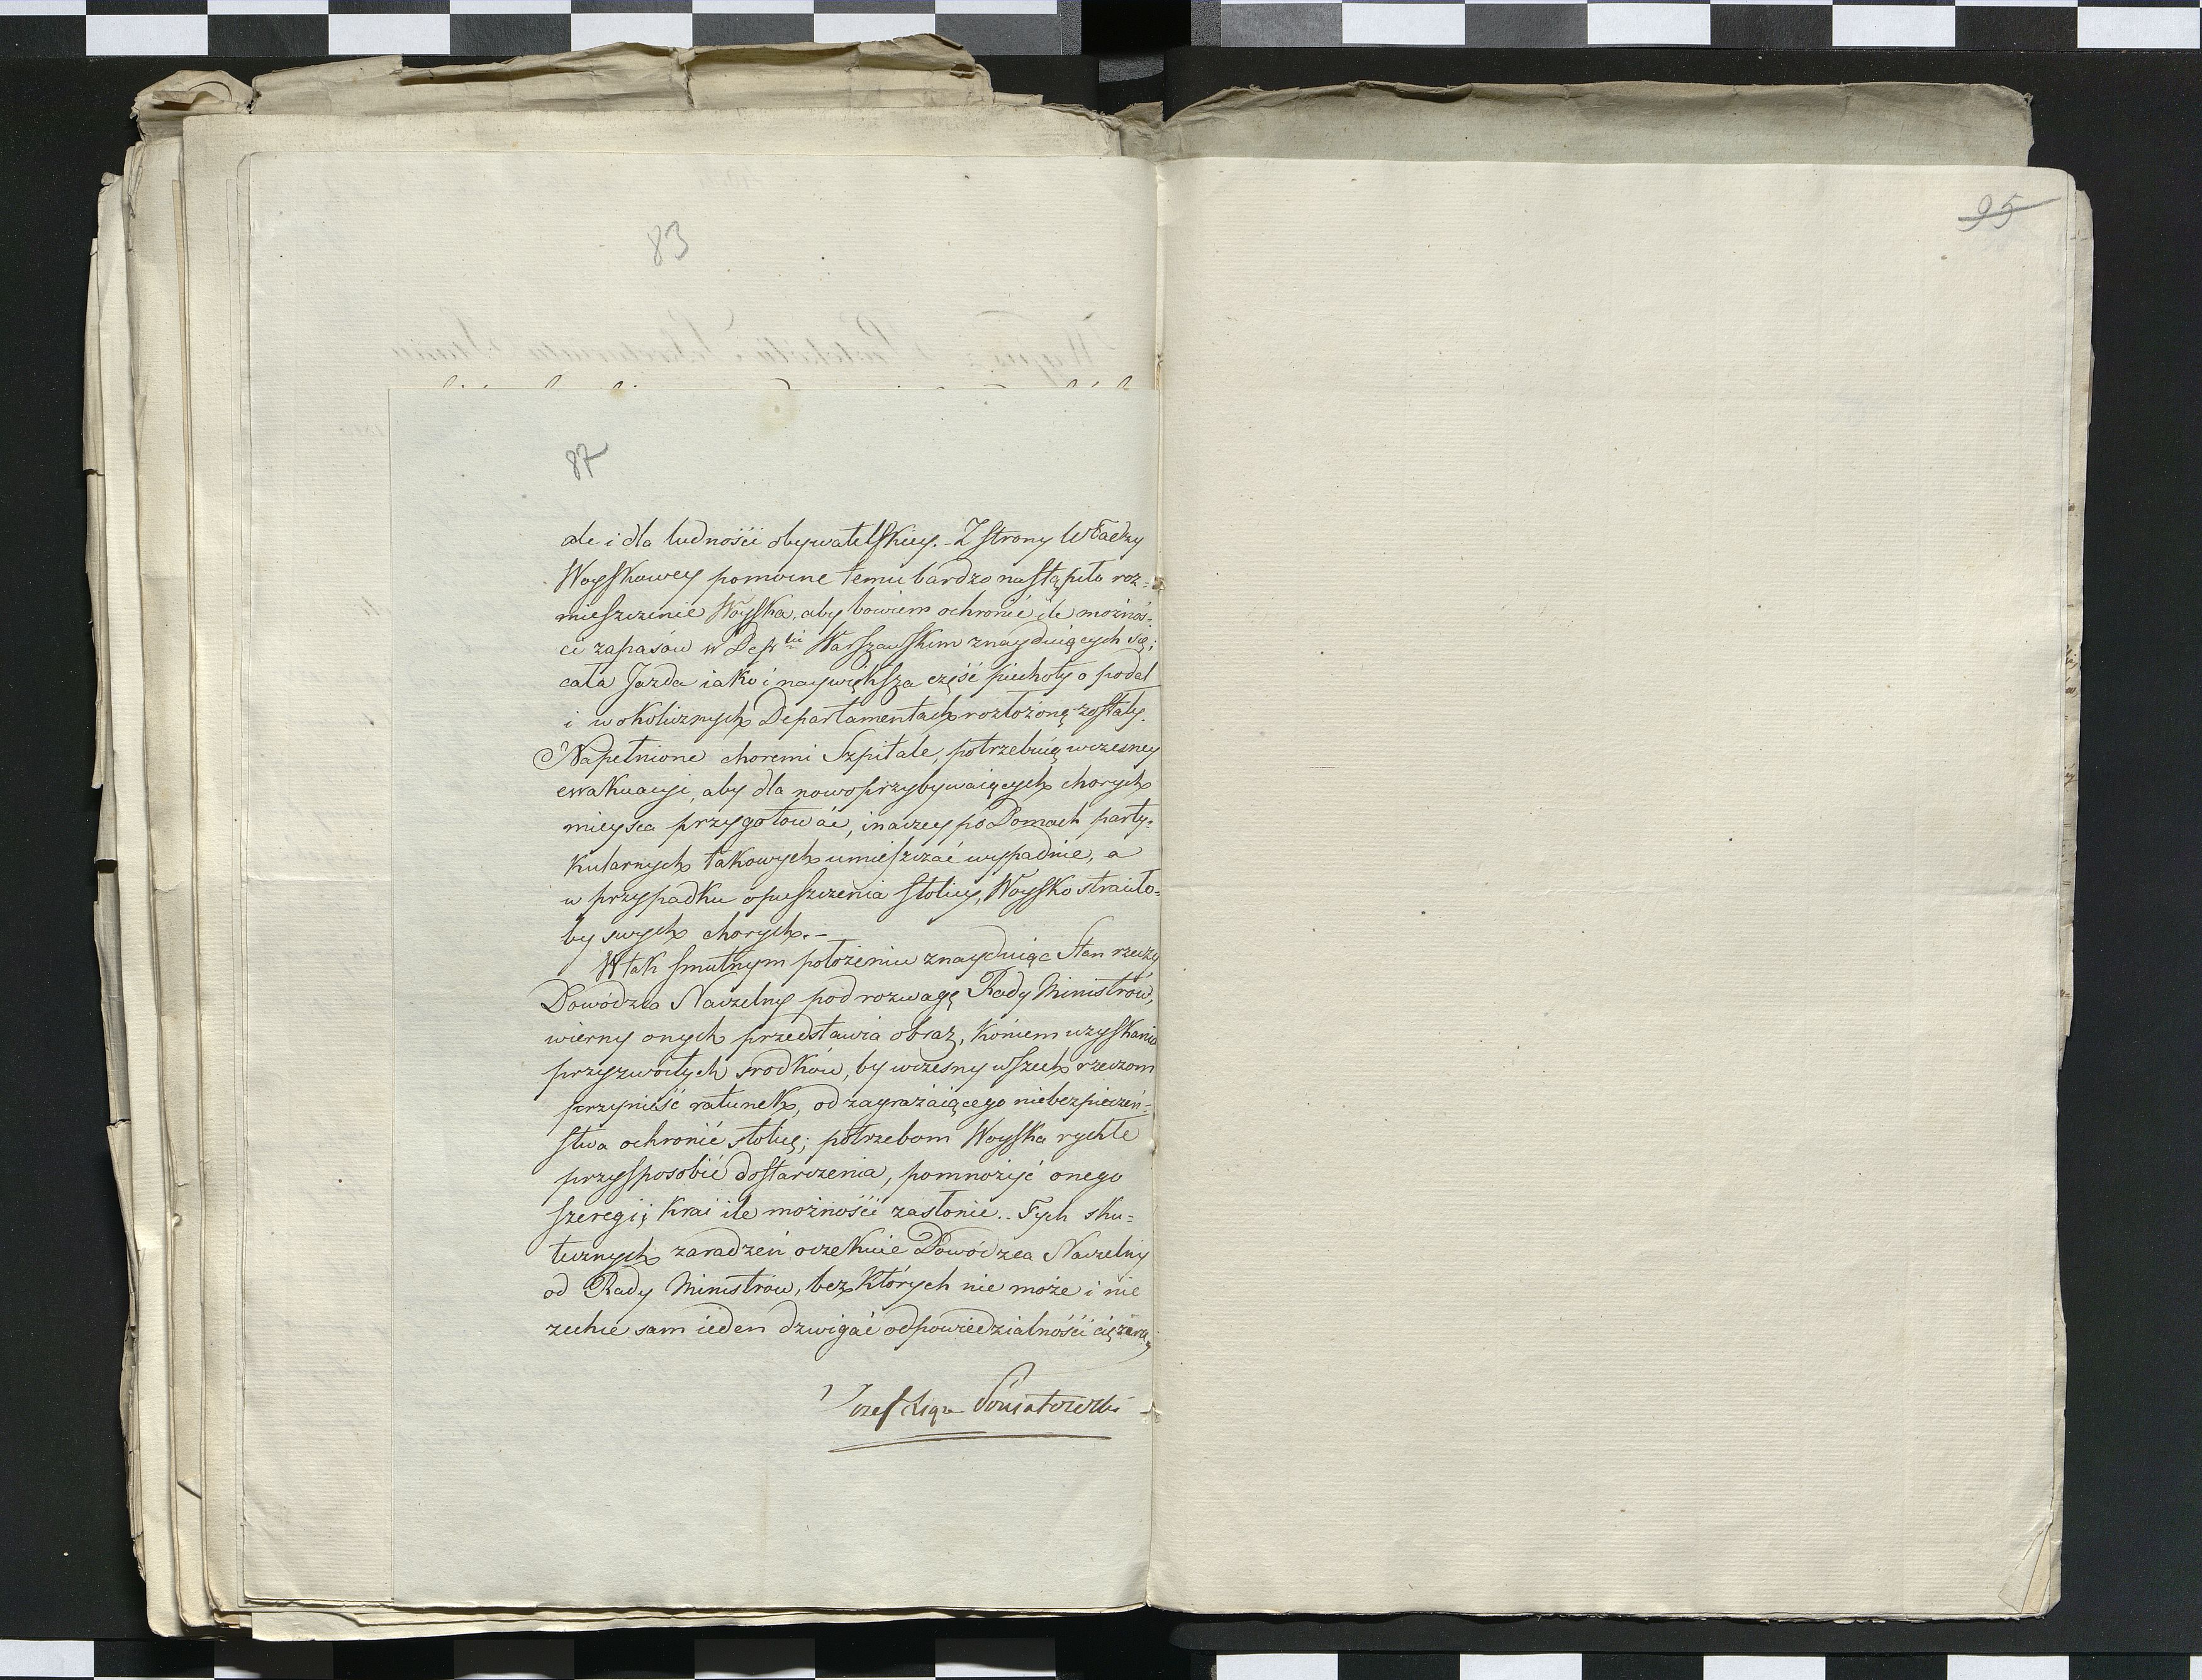 83
87
ale i dla ludności obywatelskiey. - Z strony Władzy
Woyskowey pomocne temu bardzo nastąpiło roz=
mieszczenie Woyska, aby bowiem ochronić ile możnoś=
ci zapasów w Dep<sup>tcie</sup> Warszawskim znayduiących się;
cała Jazda iako i naywiększa część piechoty opodal
i w okolicznych Departamentach rozłożoną zostały.
Napełnione choremi Szpitale, potrzebuią wczesney
ewakuacyi, aby dla nowoprzybywaiących chorych
mieysca przygotować, inaczey po Domach party=
kularnych takowych umieszczać wypadnie, a
w przypadku opuszczenia stolicy, Woysko straciło=
by swych chorych. -
W tak smutnym położeniu znayduiąc Stan rzeczy
Dowódzca Naczelny pod rozwagę Rady Ministrów,
wierny onych przedstawia obraz, końcem uzyskania
przyzwoitych srodków, by wczesny wszech rzeczom
przynieść ratunek, od zagrażaiącego niebezpieczeń=
stwa ochronić stolicę; potrzebom Woyska rychłe
przysposobić dostarczenia, pomnożyć onego
szeregi; kray ile możności zasłonić. - Tych sku=
tecznych zaradzeń oczekuie Dowódzca Naczelny
od Rady Ministrów, bez których nie może i nie
zechce sam ieden dzwigać odpowiedzialności ciężaru
Jozef Xiąże Poniatowski
95